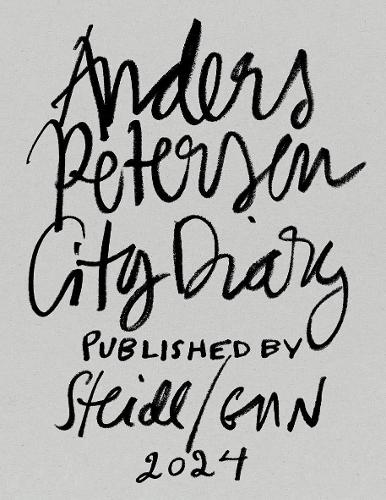 Anders
Petersen
City Diary
PUBLISHED BY
Steidl/GUN
2024